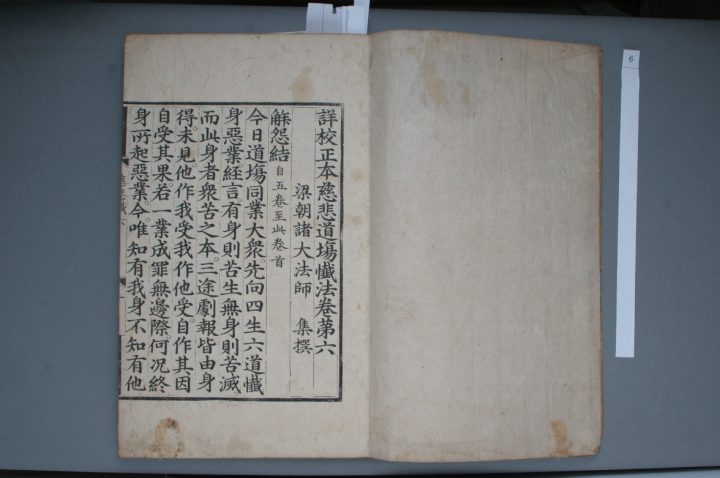 詳校正本慈悲道場懺法卷第六
梁朝諸大法師 集撰
解怨結 自五卷至此卷首
今日道場同業大衆先向四生六道懺
身惡業經言有身則苦生無身則苦滅
而此身者衆苦之本三途劇報皆由身
得未見他作我受我作他受自作其因
自受其果若一業成罪無邊際何况終
身所起惡業今唯知有我身不知有他
6